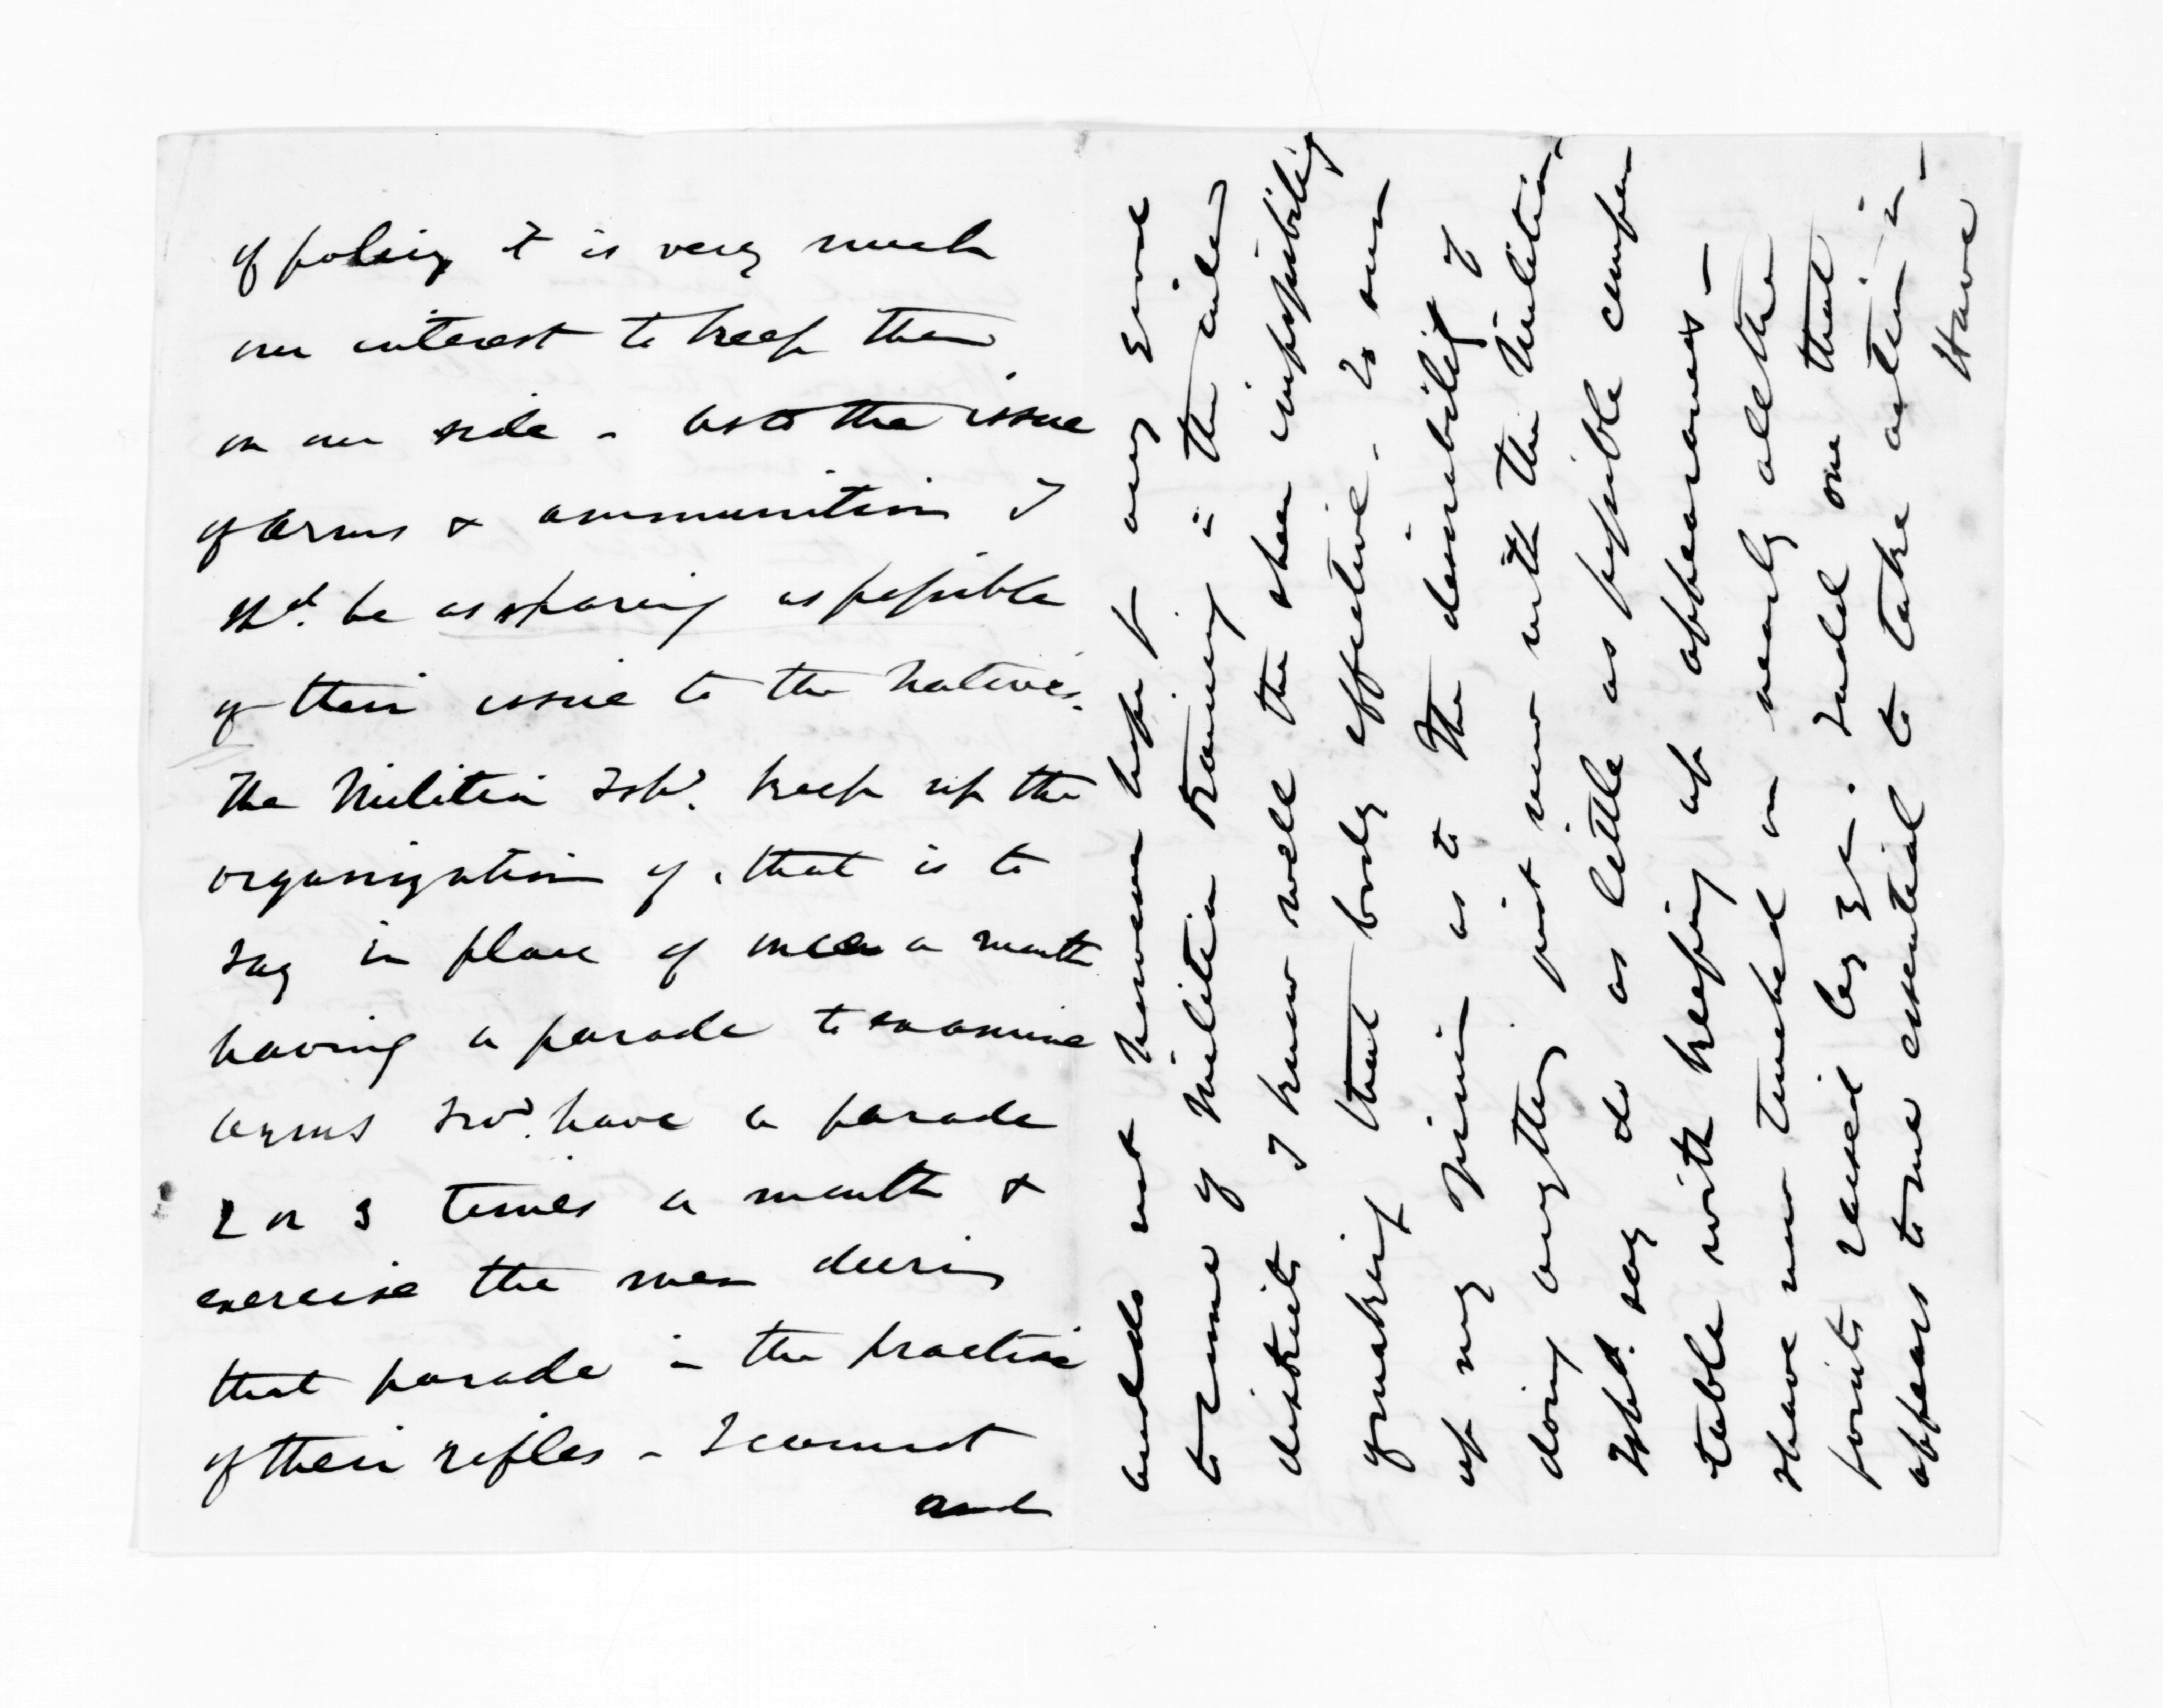 of policy it is very much
our interest to keep them
on our side - as to the issue
of arms & ammunition I
shd. be as sparing as possible
of their issue to the Natives.
The Militia I shd. keep up the
organization of, that is to
say in place of once a month
having a parade to examine
arms I wd. have a parade
2 or 3 times a month &
exercise the men during
that parade in the practice
of their rifles - I cannot
and
and do not however hope for any good
to come of Militia training in the
districts I know well the sheer impossibility
of making that body effective. To sum
up my opinion as to the desirability of
doing anything just now with the Militia,
I shd. say do as little as possible compa
table with keeping up appearances -
I have now touched on nearly all the
points raised by yr. on that
appears to me essential to take action in -
Have